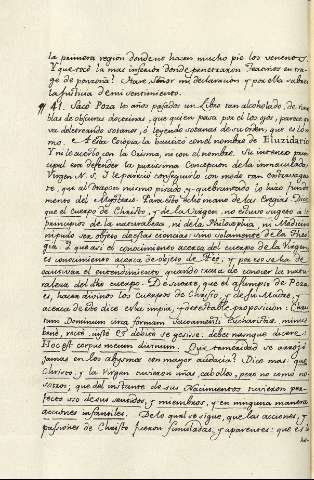 la primera region donde no hazen mucho pie los venenos.
Y que tocò la mas inferior donde penetraron Tacañas en tra-
ge de ponzoña? Hare, Señor mi declaracion, y por ella sabra
la justicia de mi sentimiento.
¶ 41. Sacò Poza los años passados un Libro tan alcoholado, de
blas de obscuras doctrinas, que quien passa por el los ojos, parece
va deletreando sotanas, ò leyendo sotanas de su orden, que es lo
mo. A esta Etiopia la bautizo con el nombre de Eluzidario
Y ni le acertò con la Crisma, ni con el nombre. Su intento
cipal era defender la purissima Concepcion de la inmaculada
Virgen N. S. I le pareciò conseguirlo con modo tan extravagan-
te, que al Dragon mismo pisado, y quebrantado lo hizo funda-
mento del Mysterio. Para esto echò mano de las Dize
que el cuerpo de Christo, y de la Virgen, no estuvo sugeto a los
principios de la naturaleza, ni de la Philosophia, ni Medicina
ni puede ser objeto de estas ciencias; sino solamente de la Theolo-
gia. I que assi el conocimiento acerca del cuerpo de la Virgen
es conocimiento acerca de objeto de Feè, y por esso ha de
cautivar el entendimiento, quando trata de conocer la natu-
raleza del dho cuerpo. De suerte, que el assumpto de Poza
es, hazer divinos los cuerpos de Christo, y de su Madre, y
acerca de esto dice una impia, y detestable proposicion:
Dominum
bene, rectè, justè et
Hoc est corpus meum divinum. Que temeridad se arrojò
jamas en los abysmos con mayor audacia? Dice mas que
Christo, y la Virgen tuvieron uñas, cabellos, pero no como no-
sotros; que del instante de sus Nacimientos tuvieron per-
fecto uso de sus sentidos, y miembros, y en ninguna manera
acciones infantiles. De lo qual se sigue, que las acciones, y
passiones de Christo fueron simuladas, y aparentes: que es